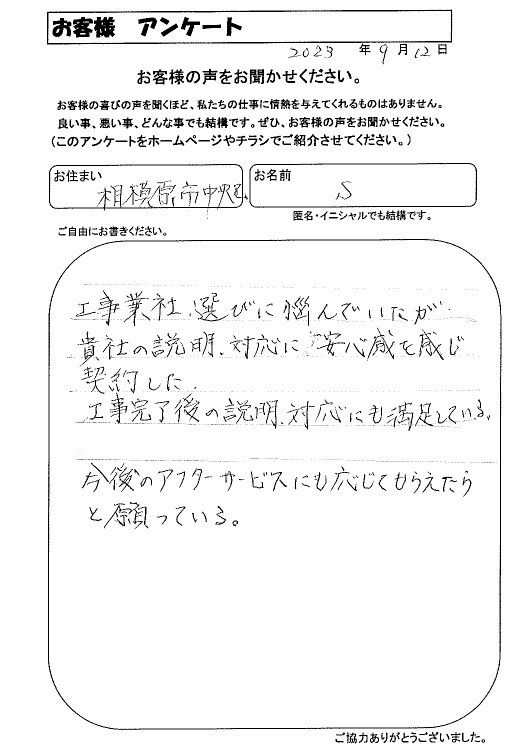 お客様 アンケート
2023 年 9 月 12 日
お客様の声をお聞かせください。
お客様の喜びの声を聞くほど、私たちの仕事に情熱を与えてくれるものはありません。
良い事、悪い事、どんな事でも結構です。ぜひ、お客様の声をお聞かせください。
(このアンケートをホームページやチラシでご紹介させてください。)
お住まい 相模原市中央区
お名前 S
匿名・イニシャルでも結構です。
ご自由にお書きください。
工事業社、選びに悩んでいたが
貴社の説明、対応に安心感を感じ
契約した
工事完了後の説明、対応にも満足している。
今後のアフターサービスにも応じてもらえたら
と願っている。
ご協力ありがとうございました。